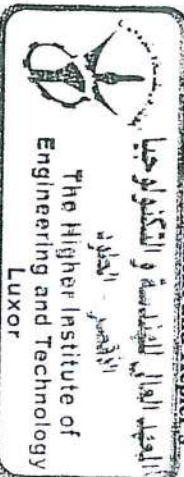 المعهد العالي للهندسة و التكنولوجيا
The Higher Institute of
Engineering and Technology
Luxor